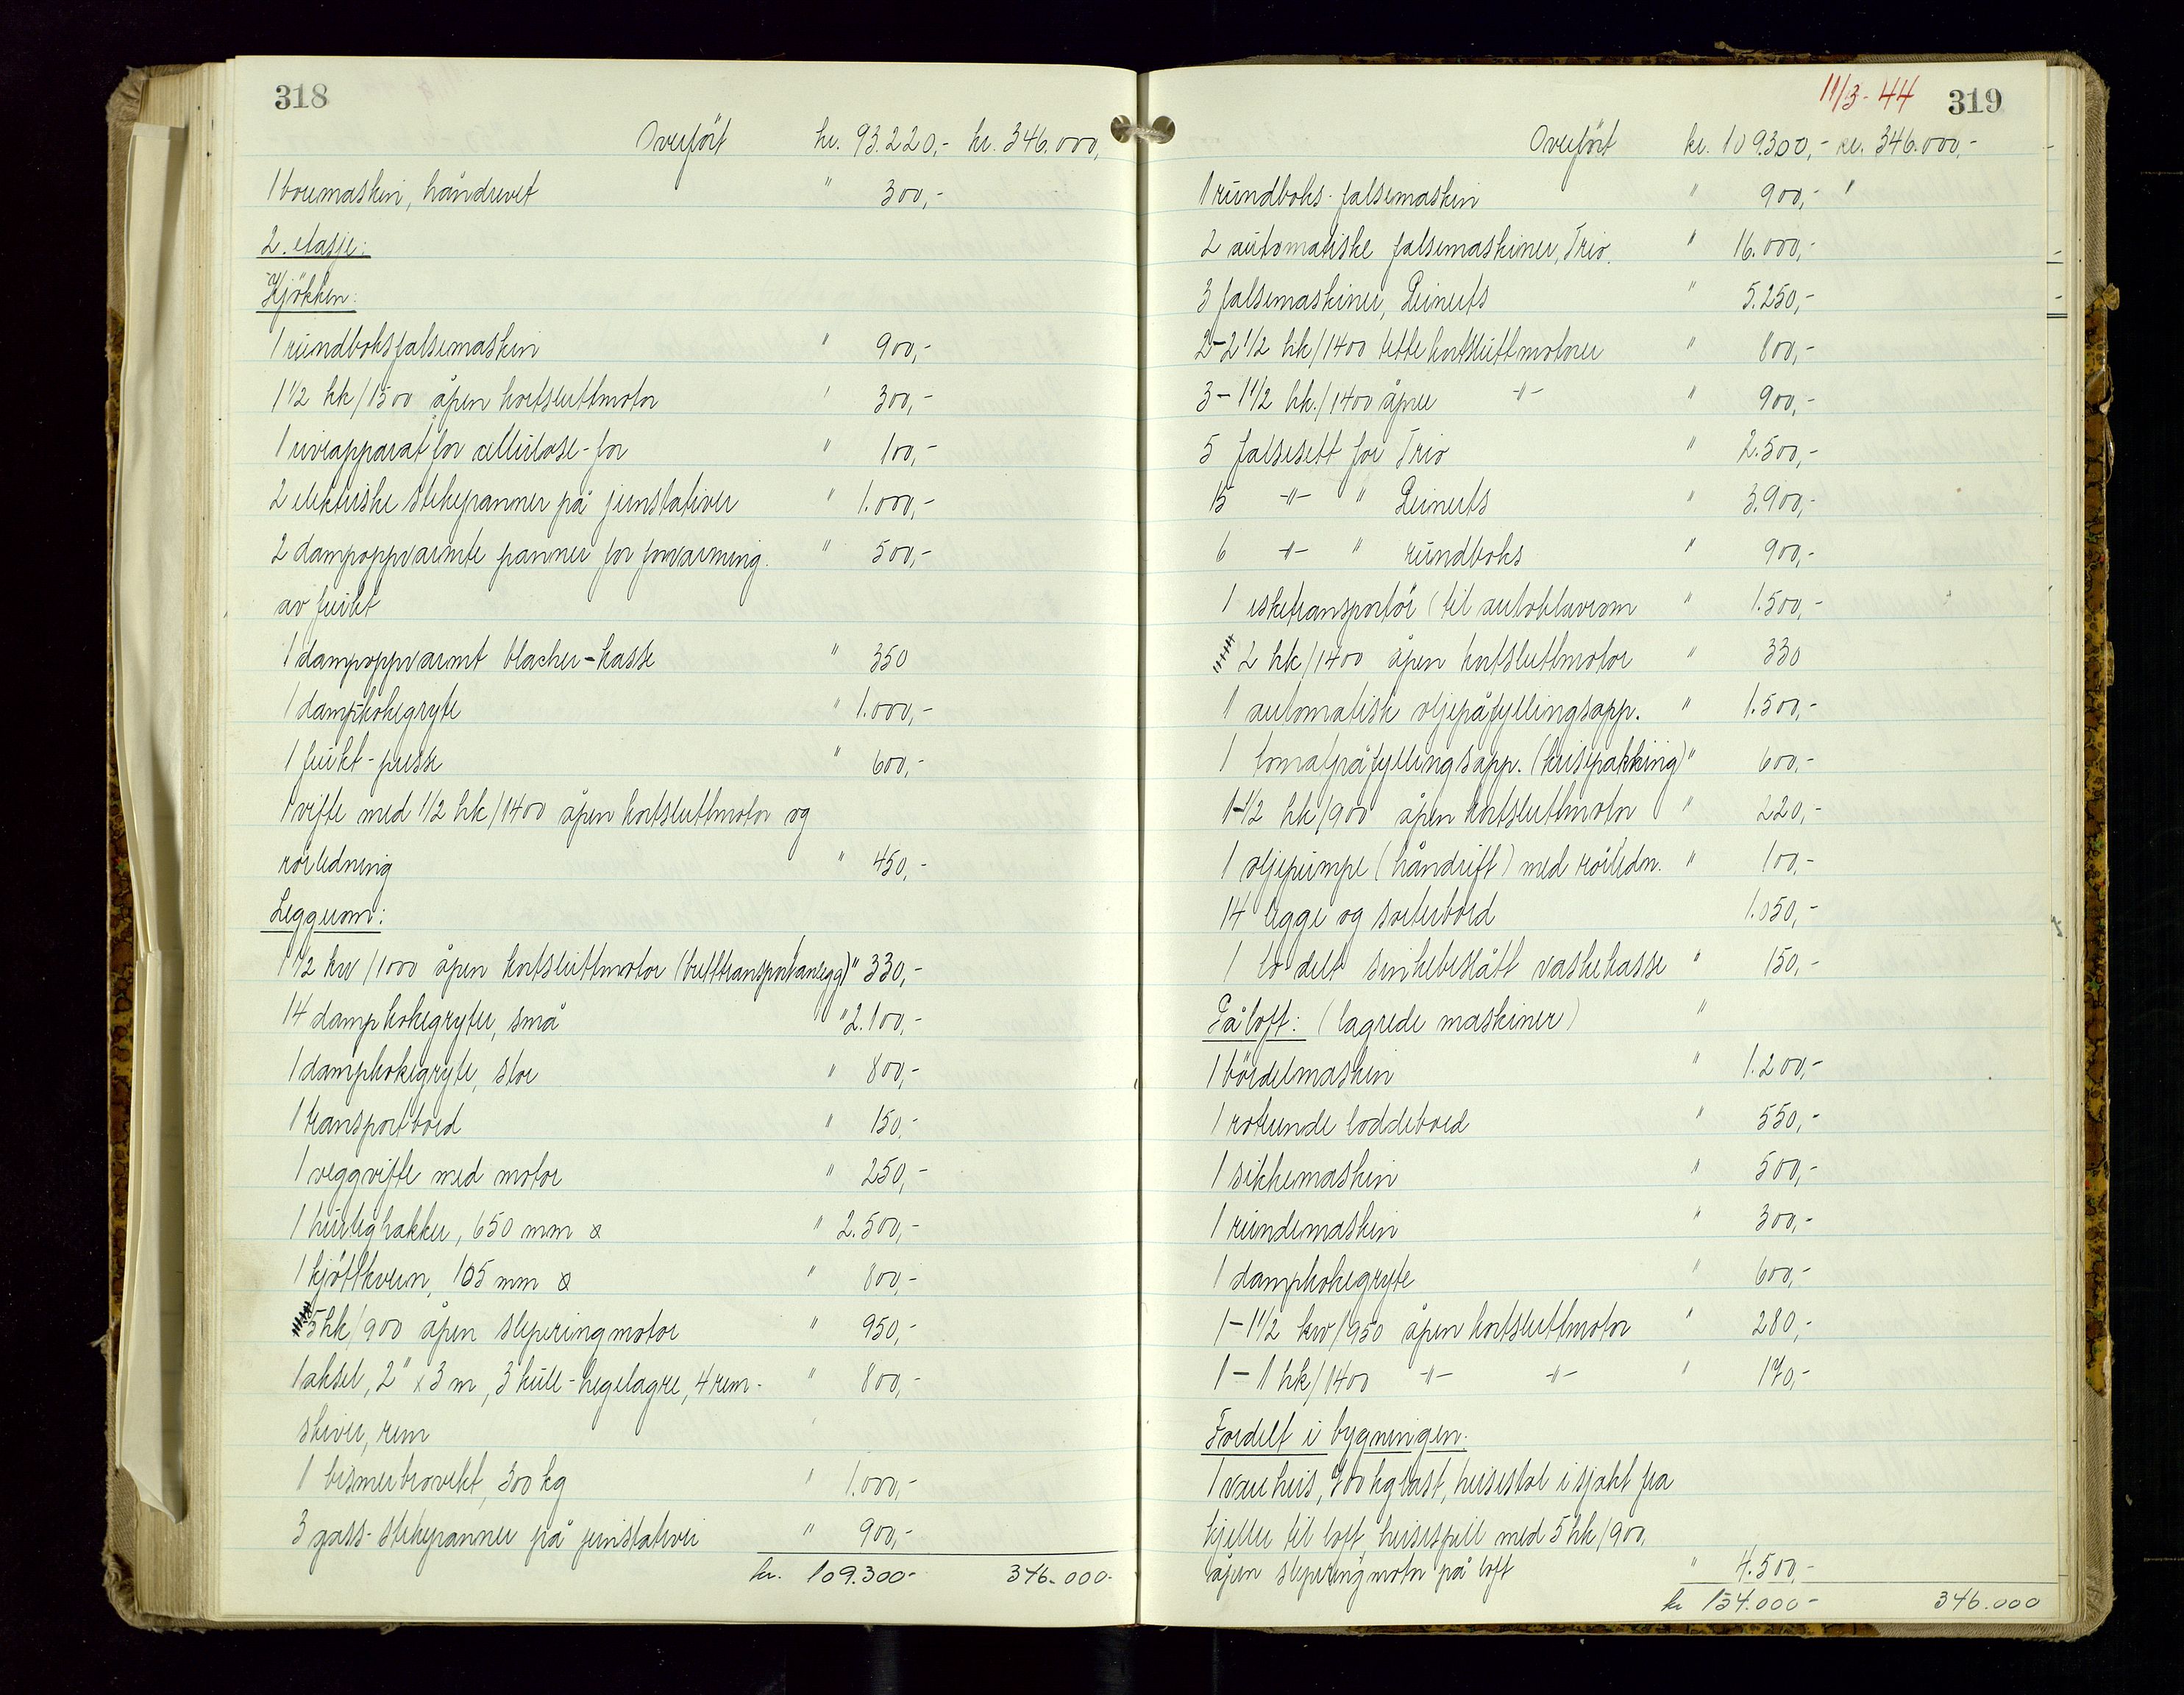 318
Overført kr. 93.220,- kr. 346.000,
1 boremaskin, håndrevet " 300,-
2. etasje:
Kjøkken:
1 rundboksfalsemaskin " 900,-
1 1/2 hk/1500 åpen kortsluttmotor " 300,-
1 riveapparat for cellulose-for " 100,-
2 elektriske stekepanner på jernstativer " 1.000,-
2 dampoppvarmte panner for forvarming. " 500,-
av frukt
1 dampoppvarmt blacher-kasse " 350
1 dampkokegryte " 1.000,-
1 frukt-presse " 600,-
1 vifte med 1/2 hk/1400 åpen kortsluttmotor og
rørledning " 450,-
Leggerom:
1 1/2 kw/1000 åpen kortsluttmotor (bretttransportanlegg) " 330,-
14 dampkokegryter, små " 2.100,-
1 dampkokegryte, stor " 800,-
1 transportbord " 150,-
1 veggvifte med motor " 250,-
1 hurtighakker, 650 mm ⌀ " 2.500,-
1 kjøttkvern, 105 mm ⌀ " 800,-
5 hk/900 åpen sleperingmotor " 950,-
1 aksel, 2" x 3 m, 3 kule-hegelagre, 4 rem- " 800,-
skiver, rem
1 bismerbrovekt, 300 kg " 1.000,-
3 gass-stekepanner på jernstativer " 900,-
kr. 109.300- 346.000-
11/3-44 319
Overført kr. 109.300,- kr. 346.000,-
1 rundboks-falsemaskin " 900,- "
2 automatiske falsemaskiner, Trio. " 16.000,-
3 falsemaskiner, Leinerts " 5.250,-
2-2 1/2 hk/1400 tette kortsluttmotorer " 800,-
3-1 1/2 hk./1400 åpne -"- " 900,-
5 falsesett for Trio " 2.500,-
15 -"- " Leinerts " 3.900,-
6 -"- " rundboks " 900,-
1 esketransportør (til autoklavrom " 1.500,-
2 hk/1400 åpen kortsluttmotor " 330
1 automatisk oljepåfyllingsapp. " 1.500,-
1 tomatpåfyllingsapp. (krisepakking) " 600,-
1-1/2 hk/900 åpen kortsluttmotor " 220,-
1 oljepumpe (håndrift) med rørledn. " 100,-
14 legge og sorterbord 1.050,-
1 to-delt sinkbeslått vaskekasse " 150,-
På loft: (lagrede maskiner) "
1 bördelmaskin " 1.200,-
1 roterende loddebord " 550,-
1 sikkemaskin " 500,-
1 rundemaskin " 300,-
1 dampkokegryte " 600,-
1-1 1/2 kw/950 åpen kortsluttmotor " 280,-
1-1 hk/1400 -"- -"- " 170,-
Fordelt i bygningen:
1 vareheis, 700 kg last, heisestol i sjakt fra
kjeller til loft, heisespill med 5 hk/900,
åpen sleperingmotor på loft " 4.500,-
kr 154.000- 346.000